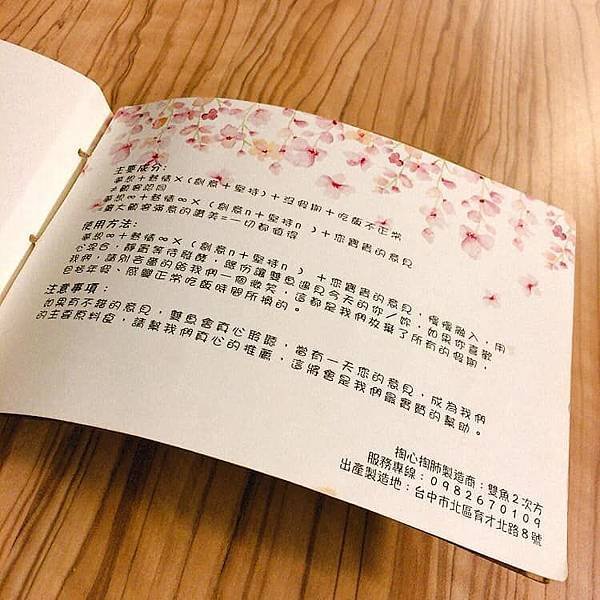 主要成分:
夢想+熱情×(創意+堅持)+沒假期+吃飯不正常
≠顧客認同
夢想∞+熱情∞×(創意n+堅持n )+您寶貴的意見
廣大顧客滿意的讚美=一切都值得
使用方法:
夢想∞+熱情∞×(創意n+堅持n )+您寶貴的意見,慢慢融入,用
心混合,靜置等待發酵,總份讓雙魚遇見今天的你/妳,如果你喜歡
我們,請別吝嗇的給我們一個微笑,這都是我們放棄了所有的假期,
包括年假、感變正常吃飯時間所換的。
注意事項:
如果有不錯的意見,雙魚會真心聆聽,當有一天您的意見,成為我們
的主要原料良,請幫我們真心的推薦,這將會是我們最實質的幫助。
掏心掏肺製造商:雙魚2次方
服務專線:0982670109
出產製造地:台中市北區育才北路8號